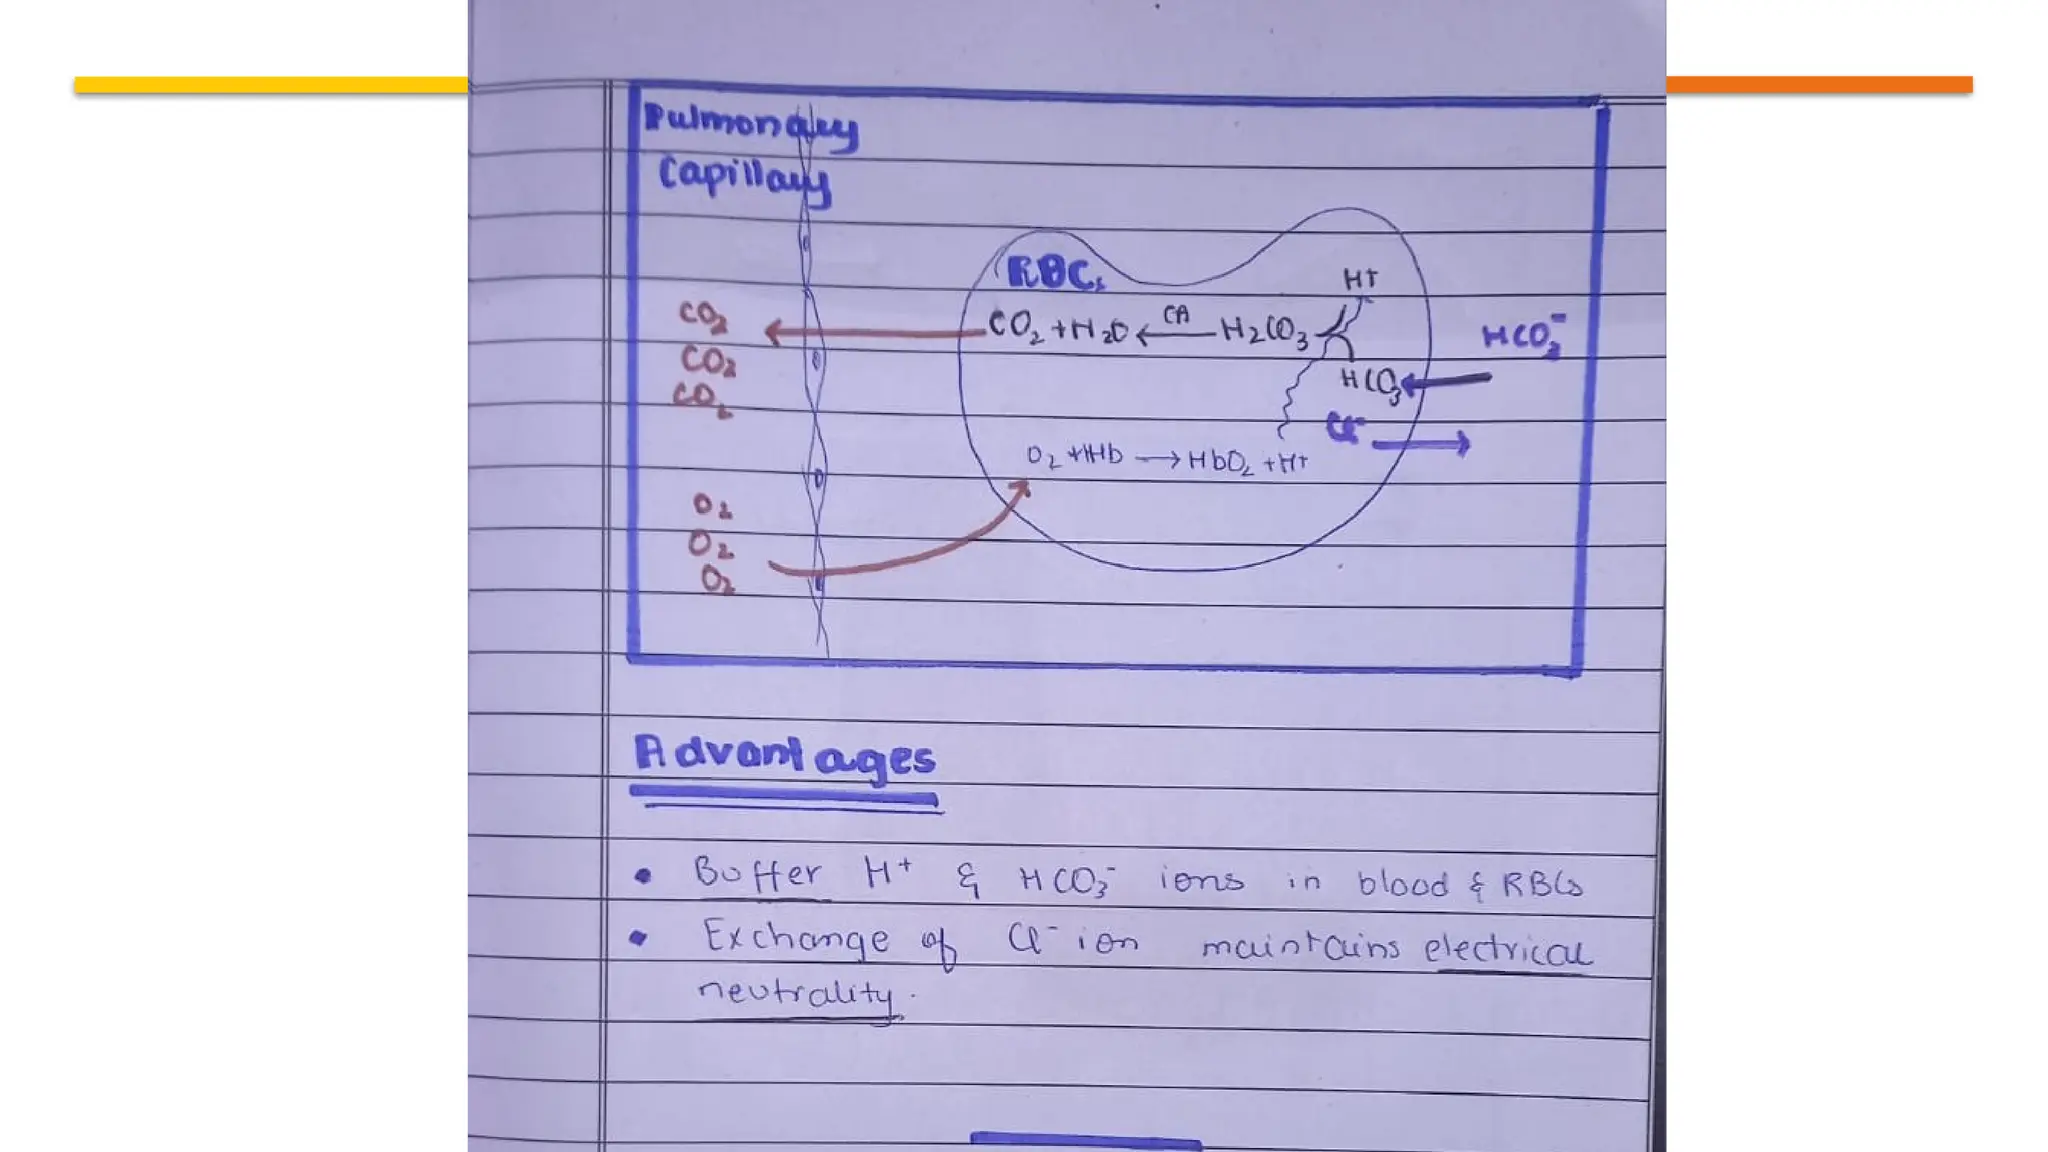 Pulmonary
Capillary
RBCs
H+
CO2 + H2O ← CA H2CO3
HCO3-
HCO3
Cl-
CO2
CO2
CO2
O2 + HHb → HbO2 + H+
O2
O2
O2
Advantages
• Buffer H+ & HCO3- ions in blood & RBCs
• Exchange of Cl- ion maintains electrical
neutrality.